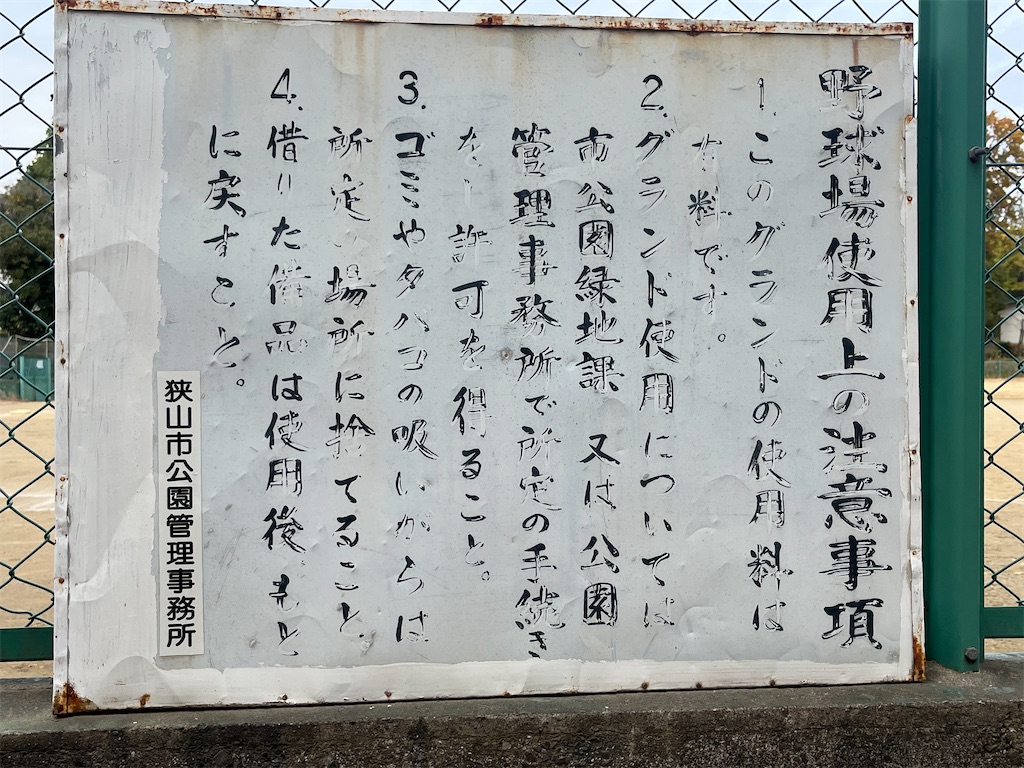 野球場使用上の注意事項
1.このグランドの使用料は
有料です。
2.グランド使用については
市公園緑地課 又は公園
管理事務所で所定の手続き
をし許可を得ること。
3.ゴミやタバコの吸いがらは
所定の場所に捨てること。
4.借りた備品は使用後もと
に戻すこと。
狭山市公園管理事務所